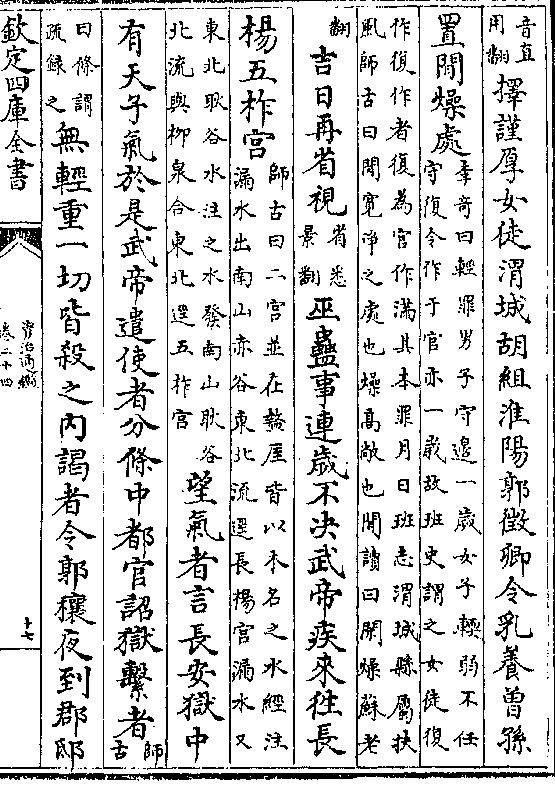 音直
用翻
擇謹厚女徒渭城胡組淮陽郭徵卿令乳養曾孫
置閒燥處
李奇曰輕罪男子守邊一歲女子輭弱不任
守復令作于官亦一歲故班史謂之女徒復
作復作者復為官作滿其本罪月日班志渭城縣屬扶
風師古曰閒寛浄之處也燥髙敞也閒讀曰閑燥蘇老
翻
吉日再省視
省悉
景翻
巫蠱事連歲不決武帝疾來往長
楊五柞宫
師古曰二宫並在盩厔皆以本名之水經注
漏水出南山赤谷東北流逕長楊宫漏水又
東北耿谷水注之水發南山耿谷
北流與柳泉合東北逕五柞宫
望氣者言長安獄中
有天子氣於是武帝遣使者分條中都官詔獄繫者
師
古
曰條謂
疏錄之
無輕重一切皆殺之内謁者令郭穰夜到郡邸
欽定四庫全書
資治通鑑
卷二十四
十七